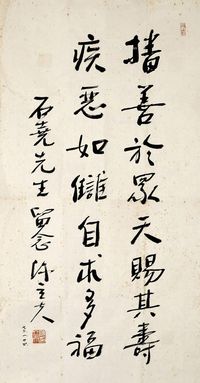 播善於眾天賜其壽
疾惡如讎自求多福
石堯先生留念 陳立夫